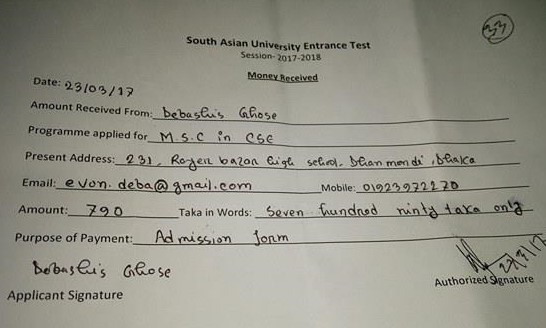 33
South Asian University Entrance Test
Session- 2017-2018
Money Received
Date: 23/03/17
Amount Received From: Debashis Ghose
Programme applied for M.S.C in CSE
Present Address: 231, Rayer bazar high school, Dhanmondi, Dhaka
Email: evon.deba@gmail.com Mobile: 01923972270
Amount: 790 Taka in Words: Seven hundrod ninty taka only
Purpose of Payment: Admission form
Debashis Ghose
Applicant Signature Authorized Signature